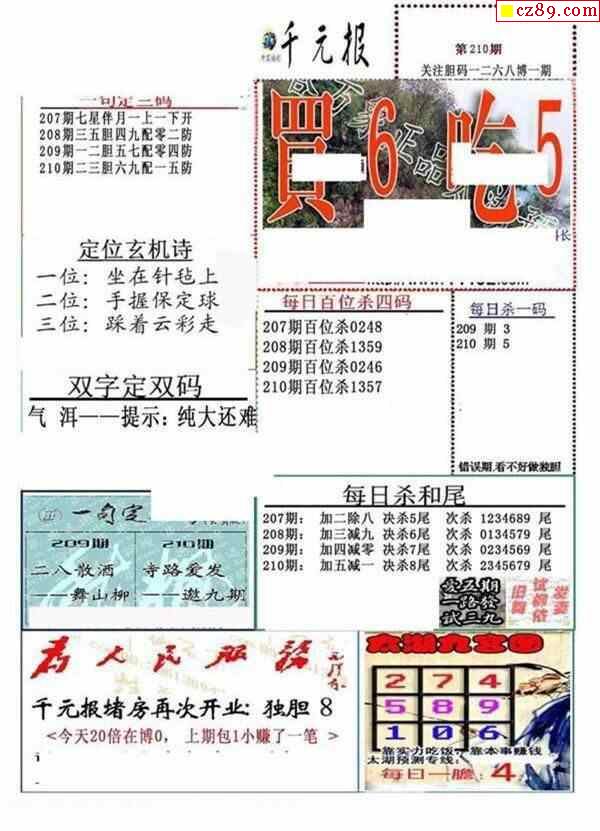 cz89.com
千元报
第210期
关注胆码一二六八博一期
一句定三码
207期七星伴月一上一下开
208期三五胆四九配零二防
209期一二胆五七配零四防
210期二三胆六九配一五防
買6吃5
定位玄机诗
一位：坐在针毡上
二位：手握保定球
三位：踩着云彩走
每日百位杀四码
207期百位杀0248
208期百位杀1359
209期百位杀0246
210期百位杀1357
每日杀一码
209 期 3
210 期 5
错误期,看不好做独胆
双字定双码
气 洱——提示：纯大还难
每日杀和尾
207期： 加二除八 决杀5尾 次杀 1234689 尾
208期： 加三减九 决杀6尾 次杀 0134579 尾
209期： 加四减零 决杀7尾 次杀 0234569 尾
210期： 加五减一 决杀8尾 次杀 2345679 尾
一句定
209期 210期
二八散酒 寺路爱发
——舞山柳 ——邀九期
爱五期
一路發
武三九
为人民服务
千元报堵房再次开业：独胆 8
<今天20倍在博0， 上期包1小赚了一笔 >
太湖九宫图
2 7 4
5 8 9
1 0 6
靠实力吃饭，靠本事赚钱
太湖预测专线：
每日一胆：4